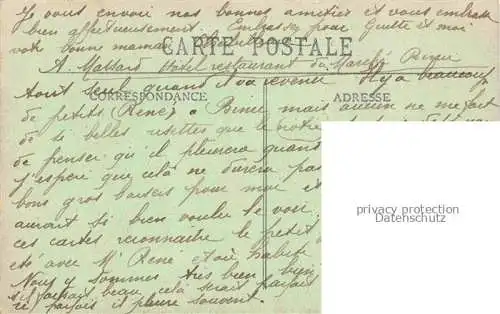 Je vous envoie nos bonnes amitiés et vous embrasse
bien affectueusement. Embrassez pour Guitte et moi
votre bonne maman
CARTE POSTALE
A. Mallard Hôtel restaurant du Marché
tout seul quand il va revenir Il y a beaucoup
CORRESPONDANCE
ADRESSE
de petits (René) à mais aucun ne fait
de si belles risettes que le nôtre
de penser qu'il pleurera quand
j'espère que cela ne durera pas
bons gros baisers pour moi et
aurait si bien voulu le voir
ces cartes reconnaitre le petit
été avec Mr René
Nous y sommes très bien
s'il faisait beau cela serait parfois
parfois il pleure souvent.
privacy protection
Datenschutz